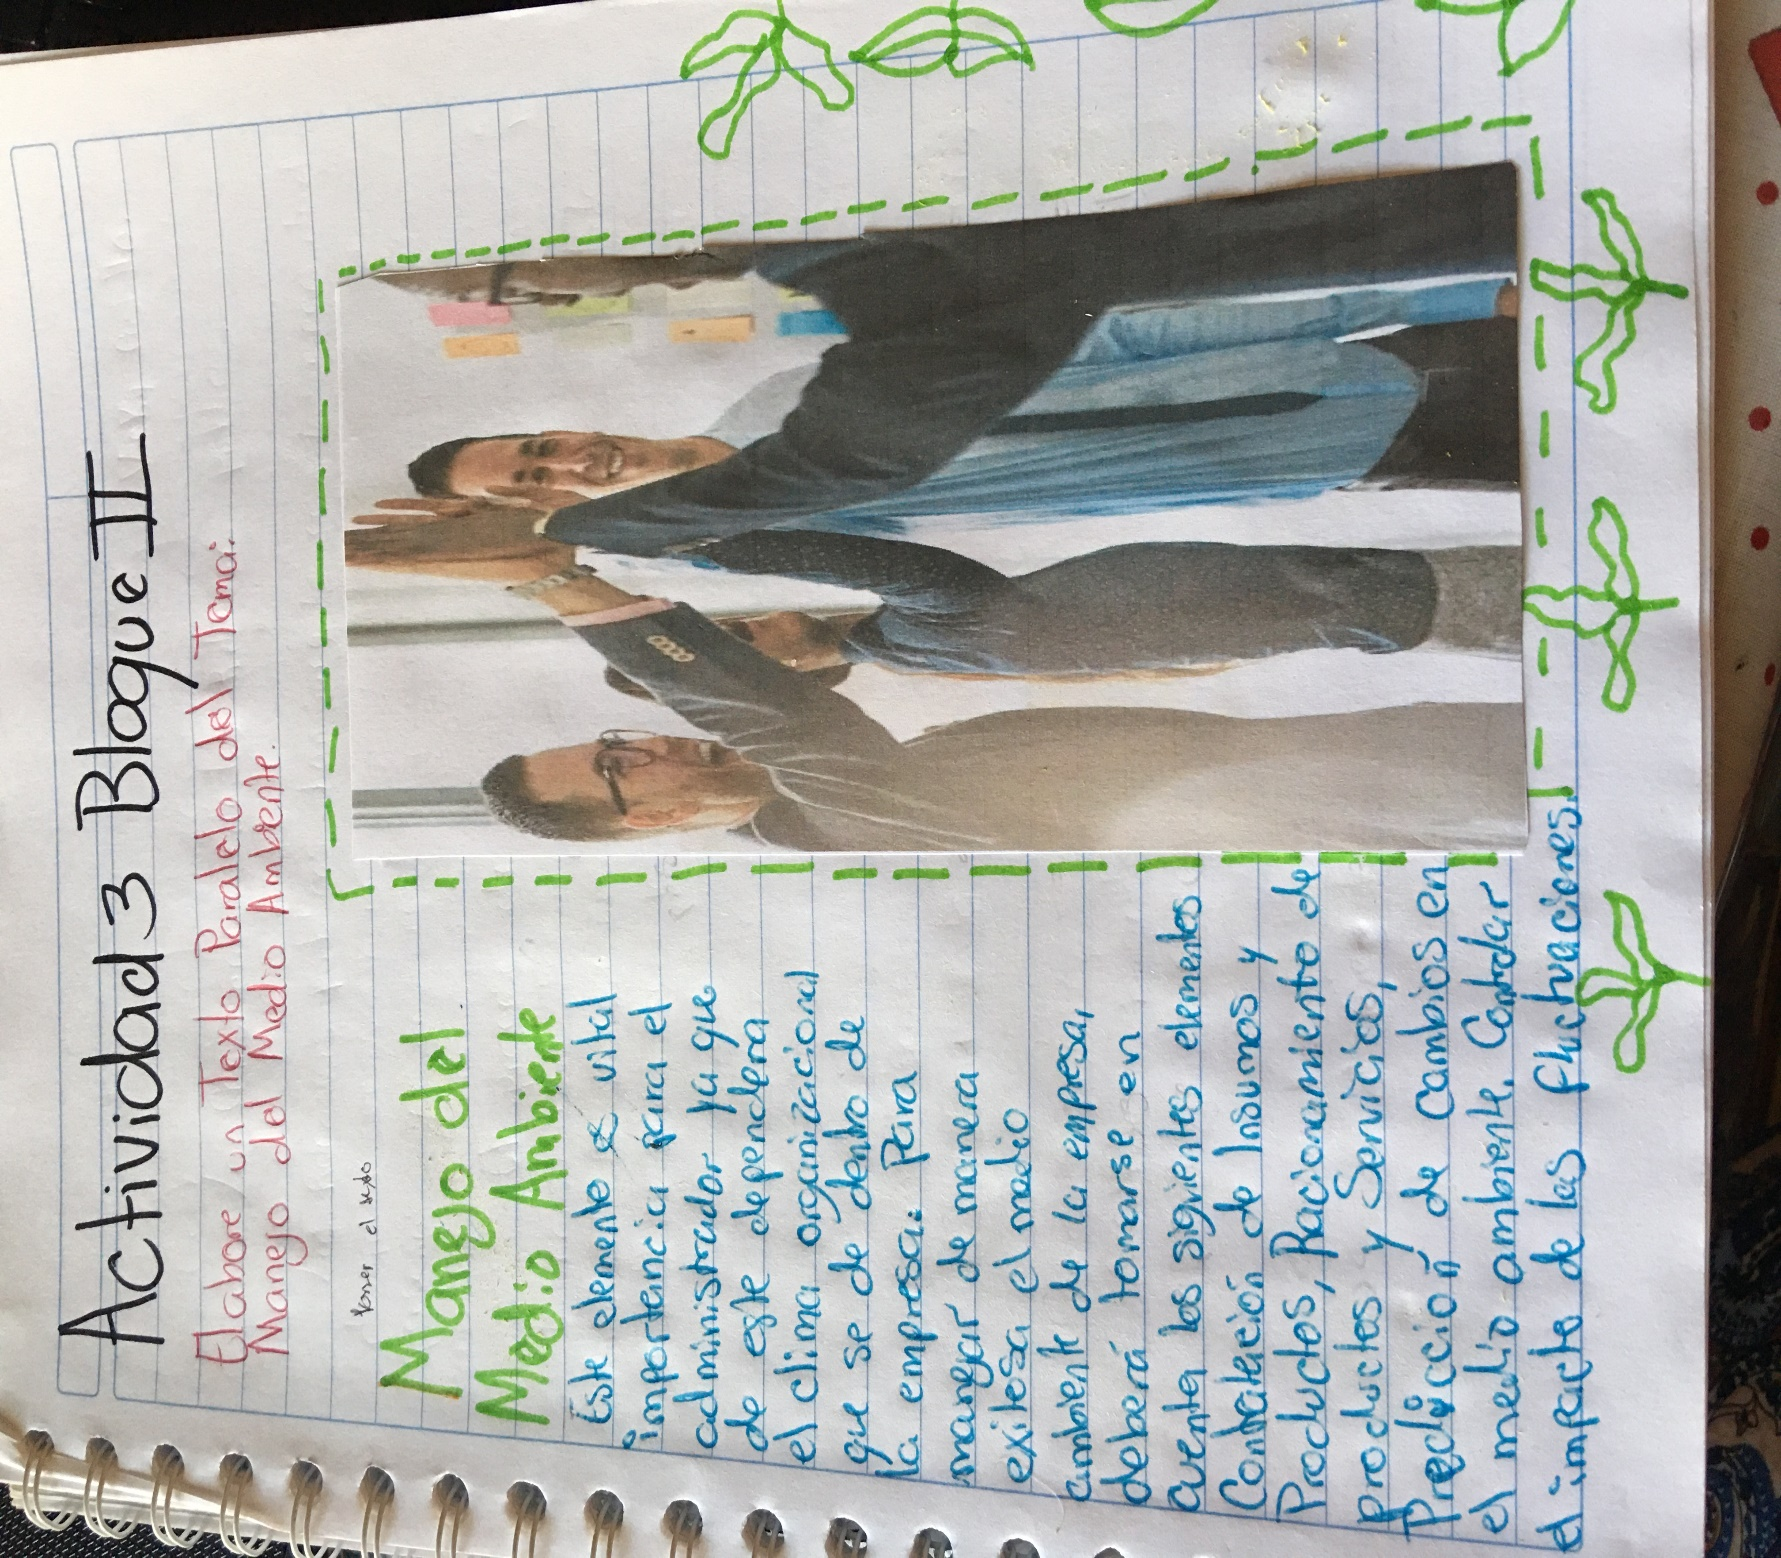 Actividad 3 Bloque II
Elabore un Texto Paralelo del Tema:
Manejo del Medio Ambiente.
el texto
Manejo del
Medio Ambiente
Este elemento es vital
importancia para el
administrador ya que
de este dependera
el clima organizacional
que se de dentro de
la empresa. Para
manejar de manera
exitosa el medio
ambiente de la empresa,
deberá tomarse en
cuenta los siguientes elementos
Contratación de Insumos y
Productos, Racionamiento de
productos y Servicios,
Predicción de cambios en
el medio ambiente, Controlar
el impacto de las fluctuaciones.